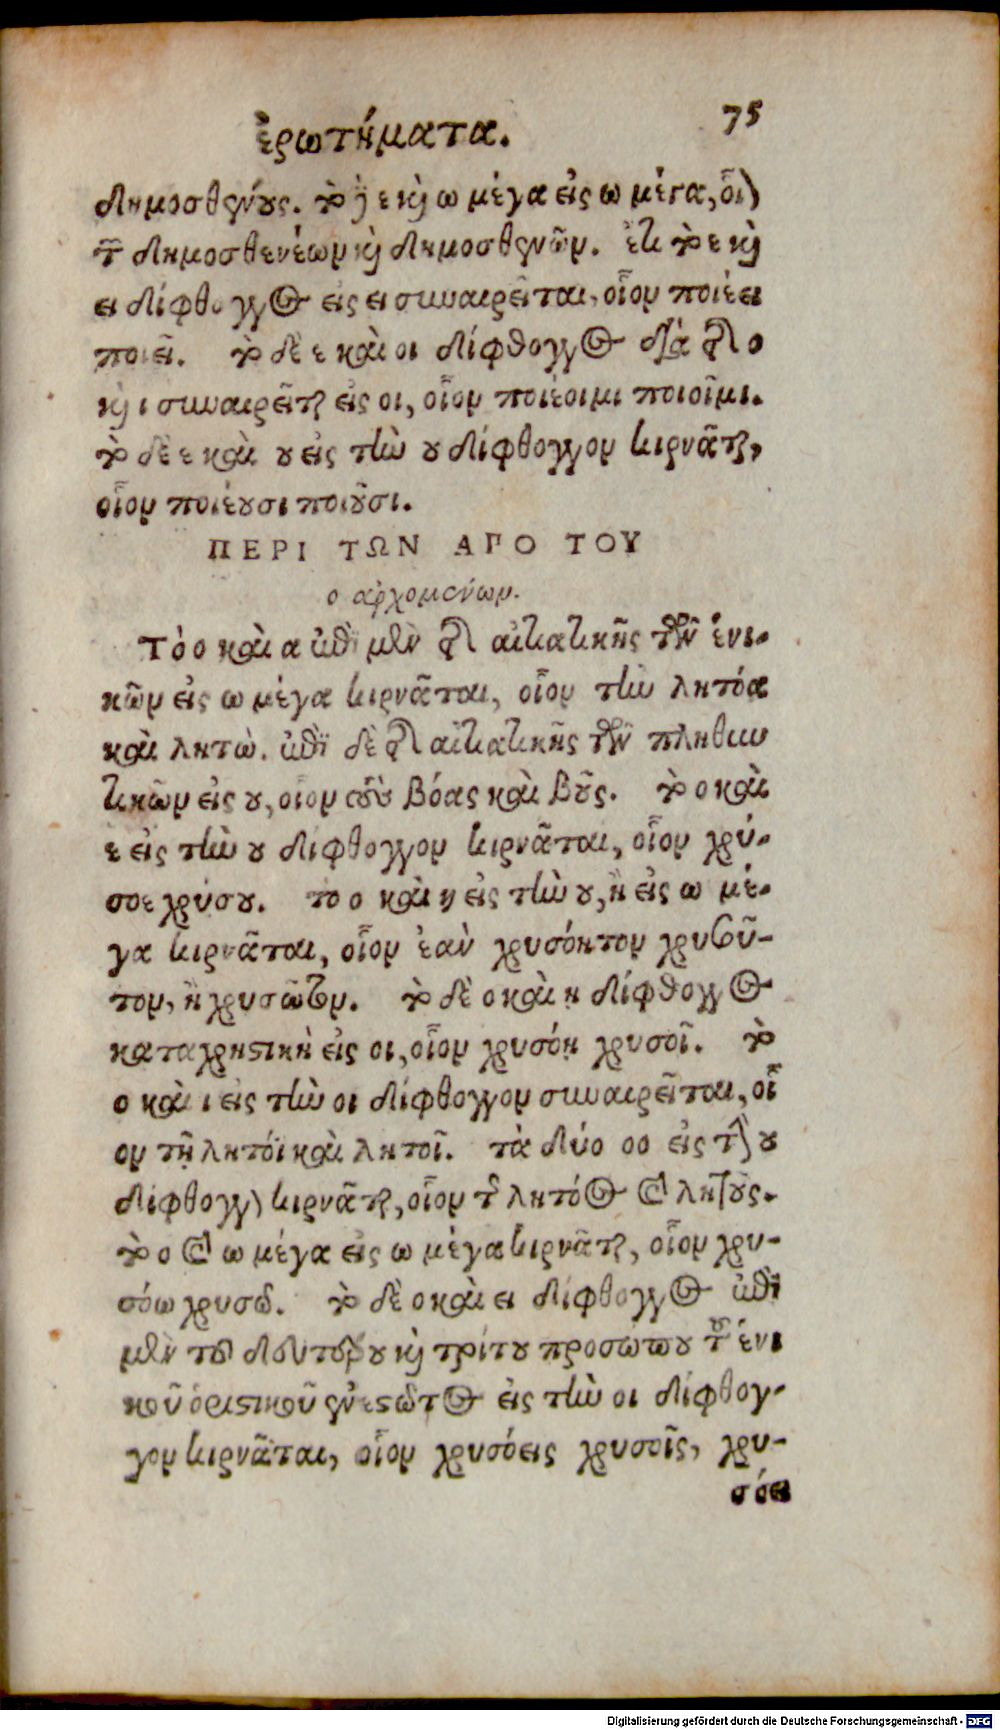 ἐρωτήματα. 75
Δημοσθένους. τὸ ε καὶ ω μέγα εἰς ω μέγα, οἷον
τῶν Δημοσθενέων καὶ Δημοσθενῶν. ἔτι τὸ ε καὶ
ει δίφθογγος εἰς ει συναιρεῖται, οἷον ποιέει
ποιεῖ. τὸ δὲ ε καὶ οι δίφθογγος διὰ τοῦ ο
καὶ ι συναιρεῖται εἰς οι, οἷον ποιέοιμι ποιοῖμι.
τὸ δὲ ε καὶ ου εἰς τὴν ου δίφθογγον κιρνᾶται,
οἷον ποιέουσι ποιοῦσι.
ΠΕΡΙ ΤΩΝ ΑΠΟ ΤΟΥ
ο ἀρχομένων.
Τὸ ο καὶ α ἐπὶ μὲν τῆς αἰτιατικῆς τῶν ἑνι-
κῶν εἰς ω μέγα κιρνᾶται, οἷον τὴν λητόα
καὶ λητώ. ἐπὶ δὲ τῆς αἰτιατικῆς τῶν πληθυν
τικῶν εἰς ου, οἷον τοὺς βόας καὶ βοῦς. τὸ ο καὶ
ε εἰς τὴν ου δίφθογγον κιρνᾶται, οἷον χρύ-
σοε χρύσου. το ο καὶ η εἰς τὴν ου, ἢ εἰς ω μέ-
γα κιρνᾶται, οἷον ἐὰν χρυσόητον χρυσοῦ-
τον, ἢ χρυσῶτον. τὸ δὲ ο καὶ ῃ δίφθογγος
καταχρηστικὴ εἰς οι, οἷον χρυσόῃ χρυσοῖ. τὸ
ο καὶ ι εἰς τὴν οι δίφθογγον συναιρεῖται, οἷ
ον τῇ λητόϊ καὶ λητοῖ. τὰ δύο οο εἰς τὴν ου
δίφθογγον κιρνᾶται, οἷον τῆς λητόος καὶ λητοῦς.
τὸ ο καὶ ω μέγα εἰς ω μέγα κιρνᾶται, οἷον χρυ-
σόω χρυσῶ. τὸ δὲ ο καὶ ει δίφθογγος ἐπὶ
μὲν τοῦ δευτέρου καὶ τρίτου προσώπου τοῦ ἑνι
κοῦ ὁριστικοῦ ἐνεστῶτος εἰς τὴν οι δίφθογ-
γον κιρνᾶται, οἷον χρυσόεις χρυσοῖς, χρυ-
σόει
Digitalisierung gefördert durch die Deutsche Forschungsgemeinschaft - DFG